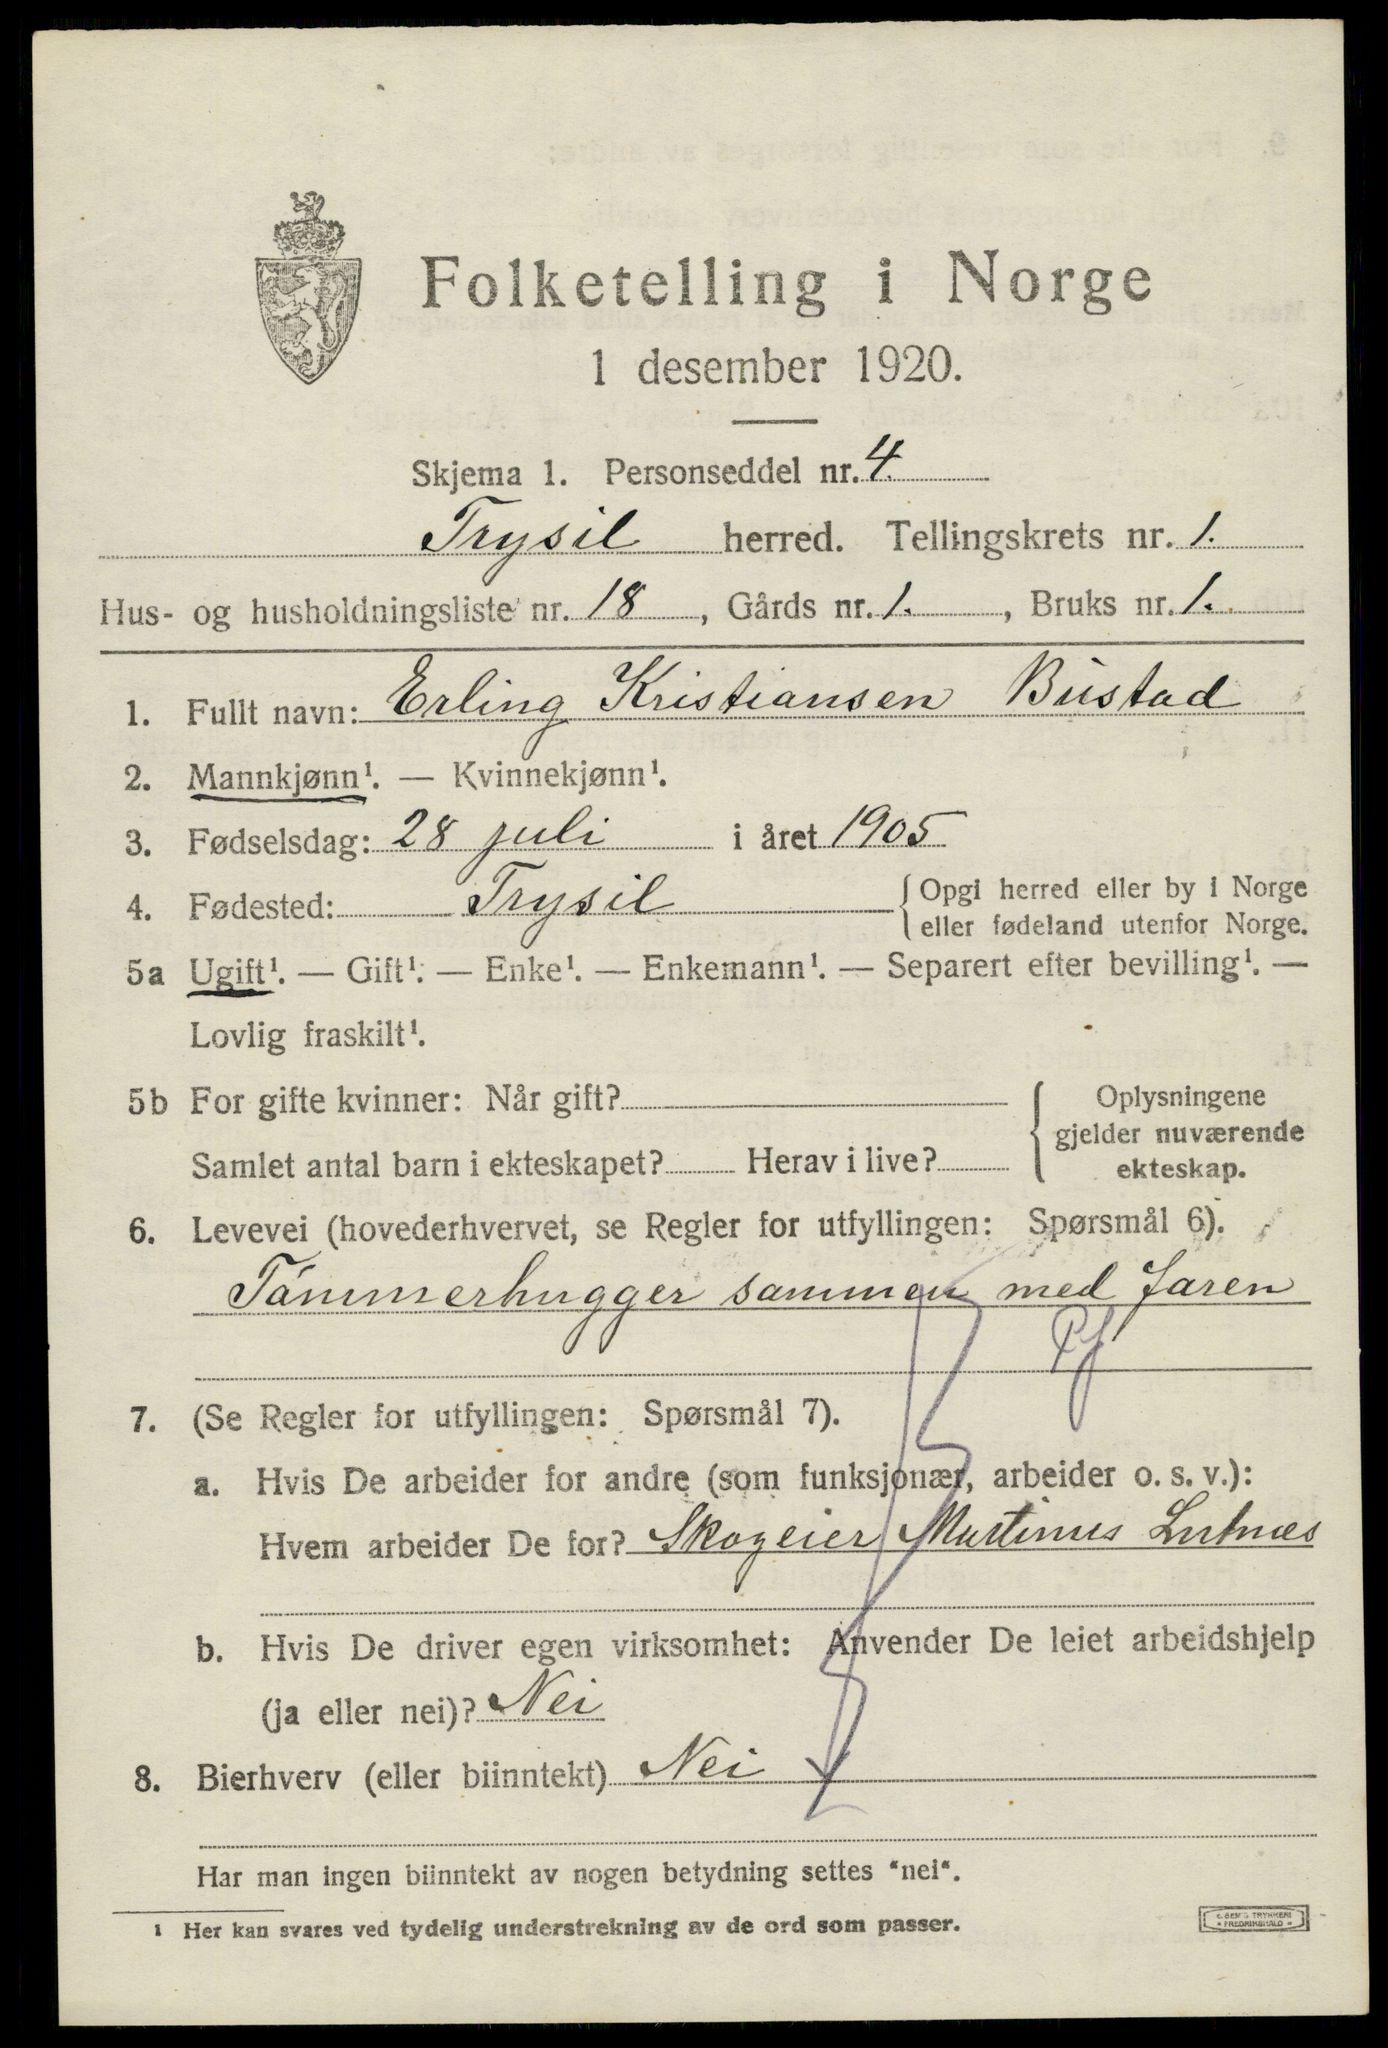 Folketelling i Norge
1 desember 1920.
Skjema 1. Personseddel nr. 4.
Trysil herred. Tellingskrets nr. 1.
Hus- og husholdningsliste nr. 18, Gårds nr. 1., Bruks nr. 1.
1. Fullt navn: Erling Kristiansen Bustad
2. Mannkjønn¹. — Kvinnekjønn¹.
3. Fødselsdag: 28 juli i året 1905
4. Fødested: Trysil { Opgi herred eller by i Norge
eller fødeland utenfor Norge.
5a Ugift¹. — Gift¹. — Enke¹. — Enkemann¹. — Separert efter bevilling¹. —
Lovlig fraskilt¹.
5b For gifte kvinner: Når gift? { Oplysningene
gjelder nuværende
Samlet antal barn i ekteskapet? Herav i live? ekteskap.
6. Levevei (hovederhvervet, se Regler for utfyllingen: Spørsmål 6).
Tømmerhugger sammen med faren
7. (Se Regler for utfyllingen: Spørsmål 7).
a. Hvis De arbeider for andre (som funksjonær, arbeider o. s. v.):
Hvem arbeider De for? Skogeier Martinus Lutnæs
b. Hvis De driver egen virksomhet: Anvender De leiet arbeidshjelp
(ja eller nei)? Nei
8. Bierhverv (eller biinntekt) Nei
Har man ingen biinntekt av nogen betydning settes "nei".
1 Her kan svares ved tydelig understrekning av de ord som passer.